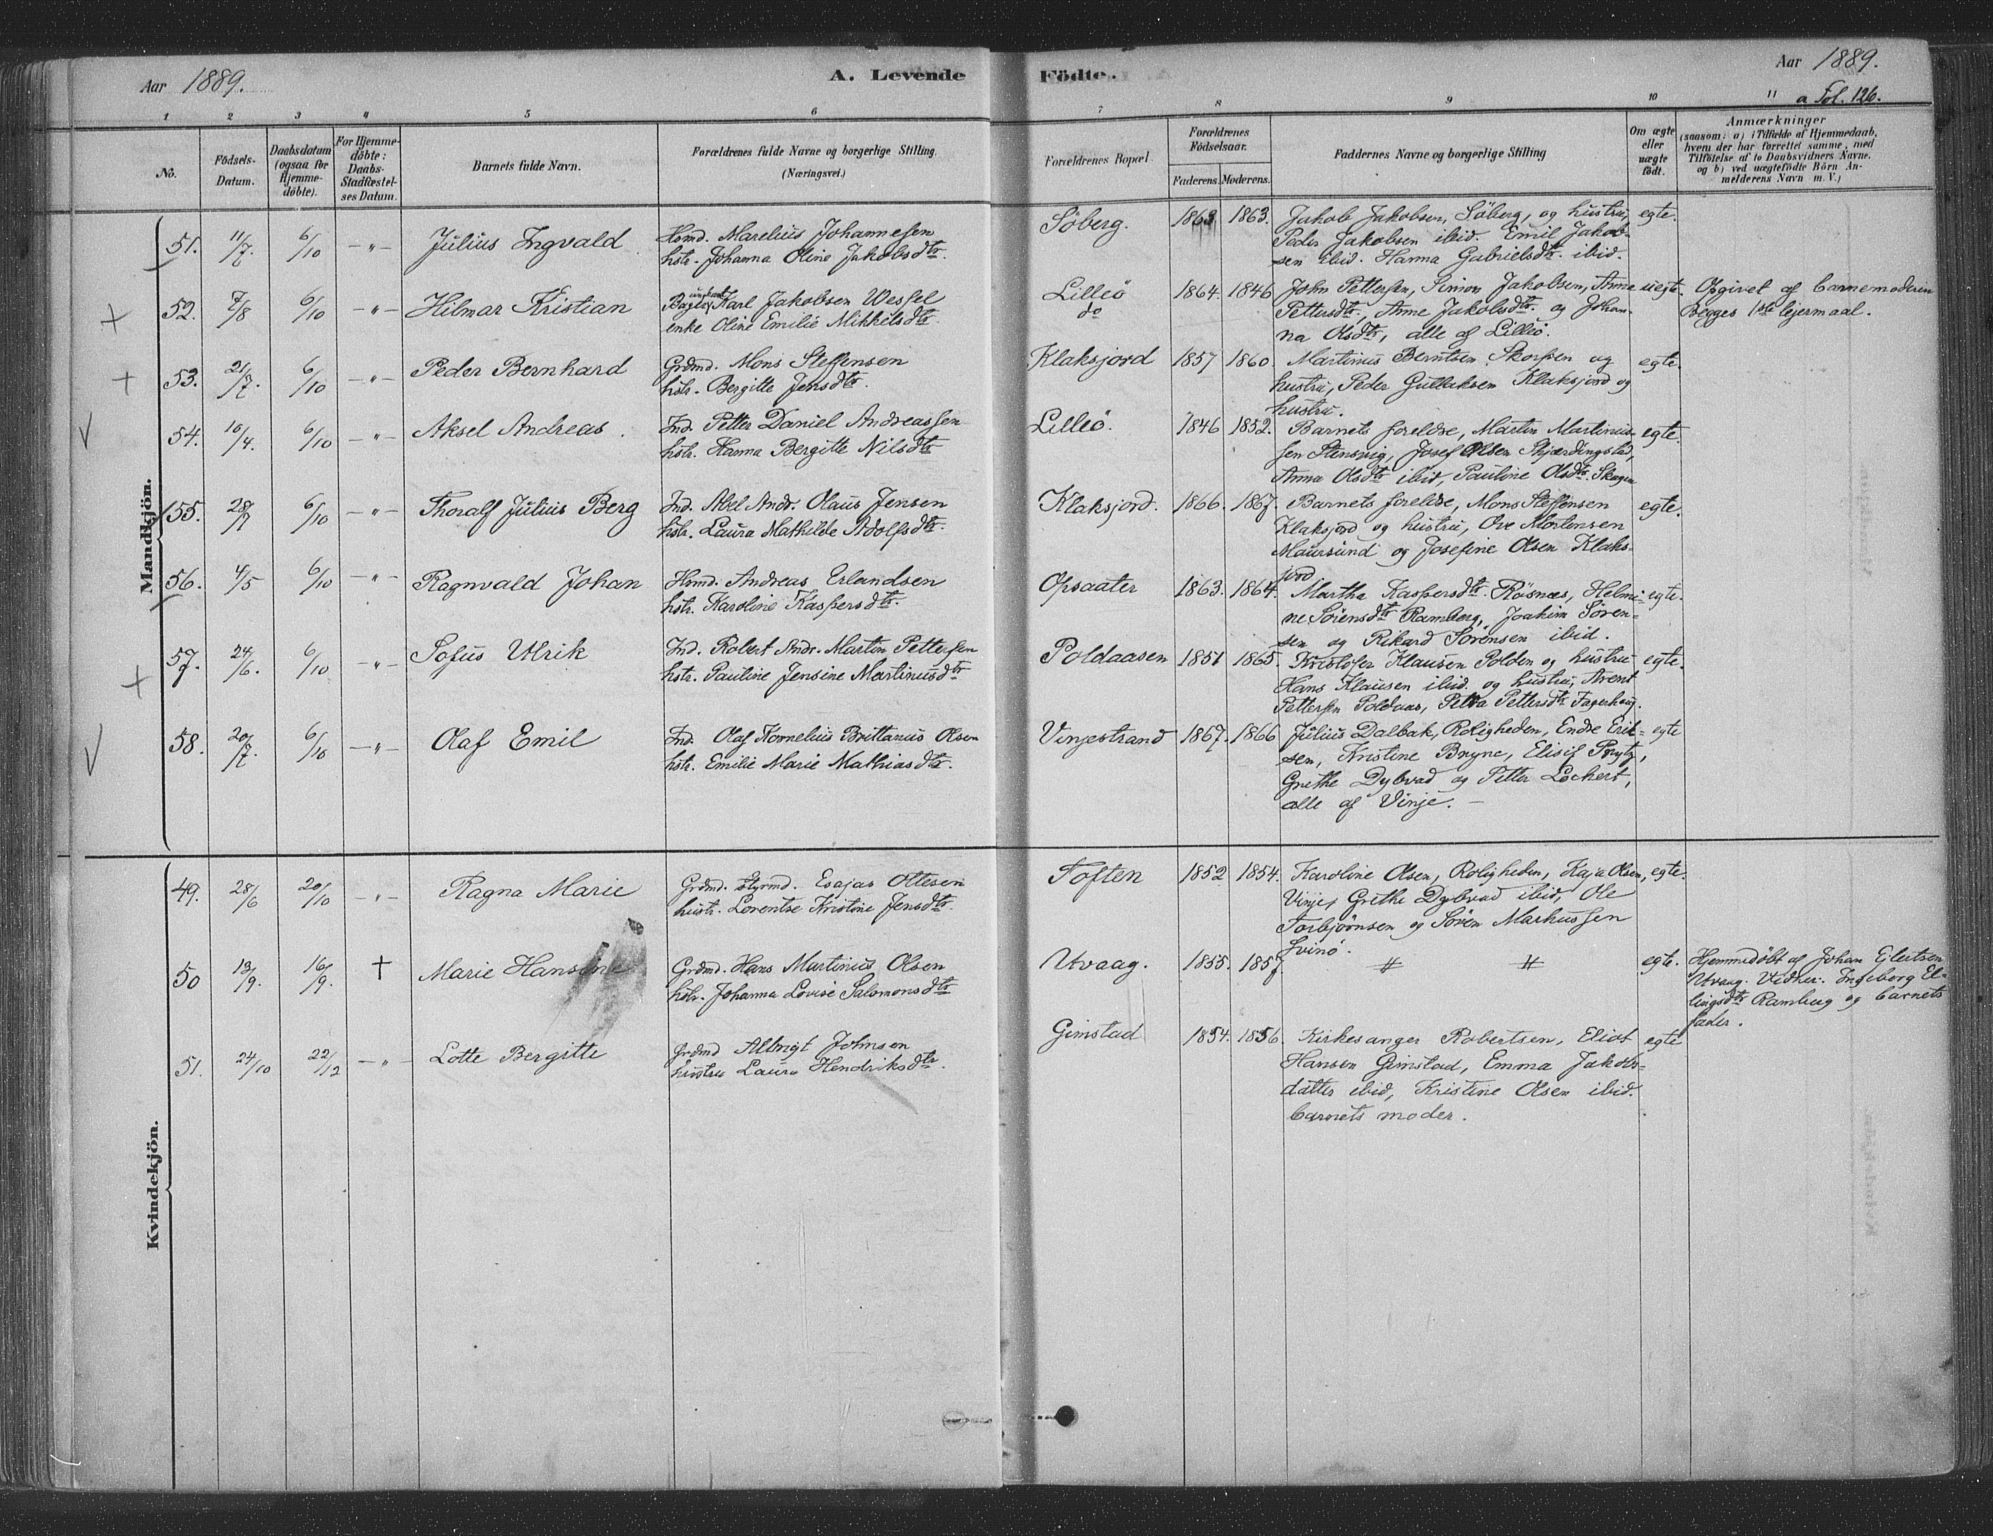 Aar 1889. A. Levende Födte. Aar 1889.
a Fol. 126.
1 2 3 4 5 6 7 8 9 10 11
No.
Födsels-
Datum.
Daabsdatum
(ogsaa for
Hjemme-
døbte).
For Hjemme-
døbte:
Daabs-
Stadfæstel-
ses Datum.
Barnets fulde Navn.
Forældrenes fulde Navne og borgerlige Stilling.
(Næringsvei.)
Forældrenes Bopæl.
Forældrenes
Fødselsaar.
Faderens. Moderens.
Faddernes Navne og borgerlige Stilling
Om ægte
eller
uægte
født.
Anmærkninger
(saasom: a) i Tilfælde af Hjemmedaab,
hvem der har forrettet samme, med
Tilføielse af to Daabsvidners Navne,
og b) ved uægtefödte Börn An-
melderens Navn m. V.)
Mandkjön.
51. 11/7. 6/10 —"— Julius Ingvald
Hsmd. Marelius Johannesen
hstr. Johanna Oline Jakobsdtr.
Søberg. 1863 1863.
Jakob Jakobsen, Søberg, og hustru,
Peder Jakobsen ibid. Emil Jakob-
sen ibid. Hanna Gabrielsdtr. ibid.
egte.
52. 7/8 6/10 —"— Hilmar Kristian
ungkarl
Karl Jakobsen Wessel
enke Oline Emilie Mikkelsdtr.
Lilleö
do
1864. 1846
John Pettersen, Simon Jakobsen, Anne
Pettersdtr, Anne Jakobsdtr og Johan-
na Olsdtr, alle af Lilleö.
uegte.
Opgivet af barnemoderen
Begges 1ste lejermaal.
53. 21/7. 6/10 —"— Peder Bernhard
Grdmd. Mons Steffensen
hstr. Bergitte Jensdtr.
Klaksjord 1857 1860.
Martinus Berntsen Skorpen og
hustru, Peder Gulliksen Klaksjord og
hustru.
egte.
54. 16/4. 6/10 —"— Aksel Andreas.
Ind. Petter Daniel Andreassen
hstr. Hanna Bergitte Nilsdtr.
Lilleö. 1846 1852.
Barnets foreldre, Martin Martinus-
sen Stensvig, Josef Olsen Skjærdingstad,
Anna Olsdtr ibid, Pauline Olsdtr Skogen
egte.
55. 28/7 6/10 —"— Thoralf Julius Berg
Ind. Abel Andr. Olaus Jensen
hstr. Laura Mathilde Adolfsdtr.
Klaksjord. 1866. 1867.
Barnets foreldre, Mons Steffensen
Klaksjord og hustru, Ove Mortensen
Maursund og Josefine Olsen Klaks-
jord
egte.
56. 4/5 6/10 —"— Ragnvald Johan
Hsmd. Andreas Erlandsen
hstr. Karoline Kaspersdtr.
Opsaater 1863. 1864.
Martha Kaspersdtr. Röisnæs, Helmi-
ne Sörensdtr Ramberg, Joakim Sören-
sen og Rikard Sörensen ibid.
egte.
57. 24/6. 6/10 —"— Sofus Ulrik
Ind. Robert Andr. Marton Pettersen
hstr. Pauline Jensine Martinusdtr
Poldaasen 1851 1865.
Kristofer Klausen Polden og hustru
Hans Klausen ibid. og hustru, Arent
Pettersen Poldaas, Petra Pettersdtr Fagerhaug.
egte.
58. 20/7 6/10 —"— Olaf Emil
Ind. Olaf Kornelius Brittanus Olsen
hstr. Emilie Marie Mathiasdtr.
Vinjestrand 1867. 1866
Julius Dalbak, Roligheden, Endre Erik-
sen, Kristine Bryne, Elisif Prytz,
Grethe Dybvad og Petter Lochert,
alle af Vinje. —
egte
Kvindekjön.
49. 28/6 20/10 —"— Ragna Marie
Grdmd. Styrmd. Esajas Ottesen
hustr. Lorentse Kristine Jensdtr.
Toften 1852 1854.
Karoline Olsen, Roligheden, Kaja Olsen,
Vinje, Grethe Dybvad ibid, Ole
Torbjörnsen og Sören Markussen
Svinö.
egte.
50 13/9. 16/9. † Marie Hansine
Grdmd. Hans Martinus Olsen
hstr. Johanna Lovise Salomonsdtr
Utvaag. 1855. 1857.
egte.
Hjemmedøbt af Johan Eilertsen
Utvaag. Vidner: Ingeborg El-
lingsdtr Ramberg og barnets
fader.
51. 24/10 22/12 —"— Lotte Bergitte
Grdmd Albrigt Johnsen
hustru Laura Hendriksdtr
Gimstad 1854. 1856.
Kirkesanger Robertsen, Eliot
Hansen Gimstad, Emma Jakobs-
datter ibid, Kristine Olsen ibid.
barnets moder.
egte